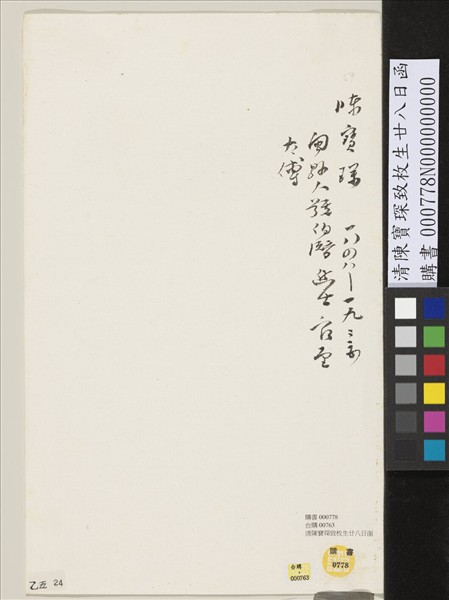 陳寶琛 一八四八—一九三五
閩縣人號伯潛進士官至
太傅
清陳寶琛致枚生廿八日函
購書 000778N000000000
購書 000778
台購 00763
清陳寶琛致枚生廿八日函
購書
0778
台購
000763
乙五 24